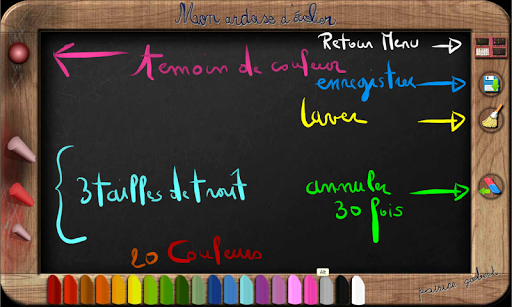 Mon ardoise d'écolier
Retour Menu
temoin de couleur
enregistrer
laver
3 tailles de trait
annuler
30 fois
20 Couleurs
Alt